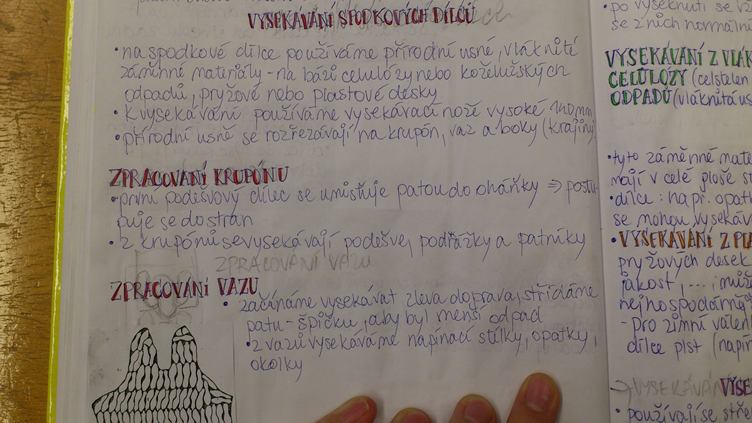 VYSEKÁVÁNÍ SPODKOVÝCH DÍLCŮ
• na spodkové dílce používáme přírodní usně, vláknité
záměnné materiály - na bázi celulózy nebo koželužských
odpadů, pryžové nebo plastové desky
• k vysekávání používáme vysekávací nože vysoké 140mm
• přírodní usně se rozřezávají na krupón, vaz a boky (krajiny)
ZPRACOVÁNÍ KRUPÓNU
• první podešvový dílec se umisťuje patou do oháňky ⇒ postu-
puje se do stran
• z krupónů se vysekávají podešve, podrážky a patníky
ZPRACOVÁNÍ VAZU
ZPRACOVÁNÍ VAZU
• začínáme vysekávat zleva doprava, střídáme
patu - špičku, aby byl menší odpad
• z vazů vysekáváme napínací stélky, opatky,
okolky
• po vyseknutí se
se z nich normáln
VYSEKÁVÁNÍ Z VLÁK
CELULÓZY (celstelen
ODPADŮ (vláknitá us
• tyto záměnné mate
mají v celé ploše st
• dílce: např. opat
se mohou vysekáv
• VYSEKÁVÁNÍ Z PL
pryžových desek
jakost, ... můž
nejhospodárněj
- Pro zimní válen
dílce plst (napín
VYSEKÁVÁN
VYSE
• používají se stře